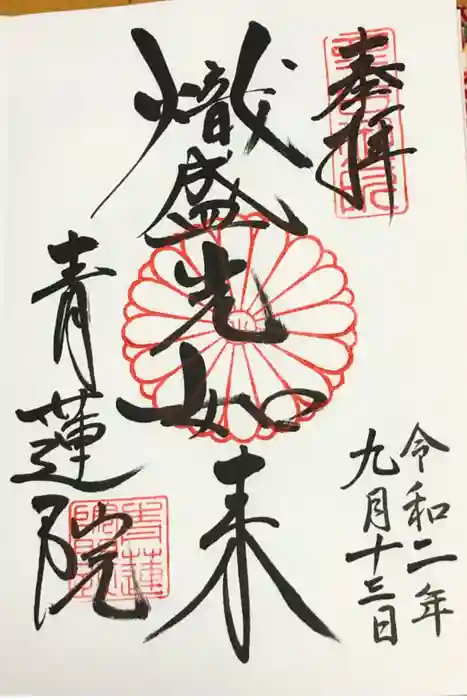 奉拝
令和二年
九月十三日
熾盛光如来
青蓮院
青蓮